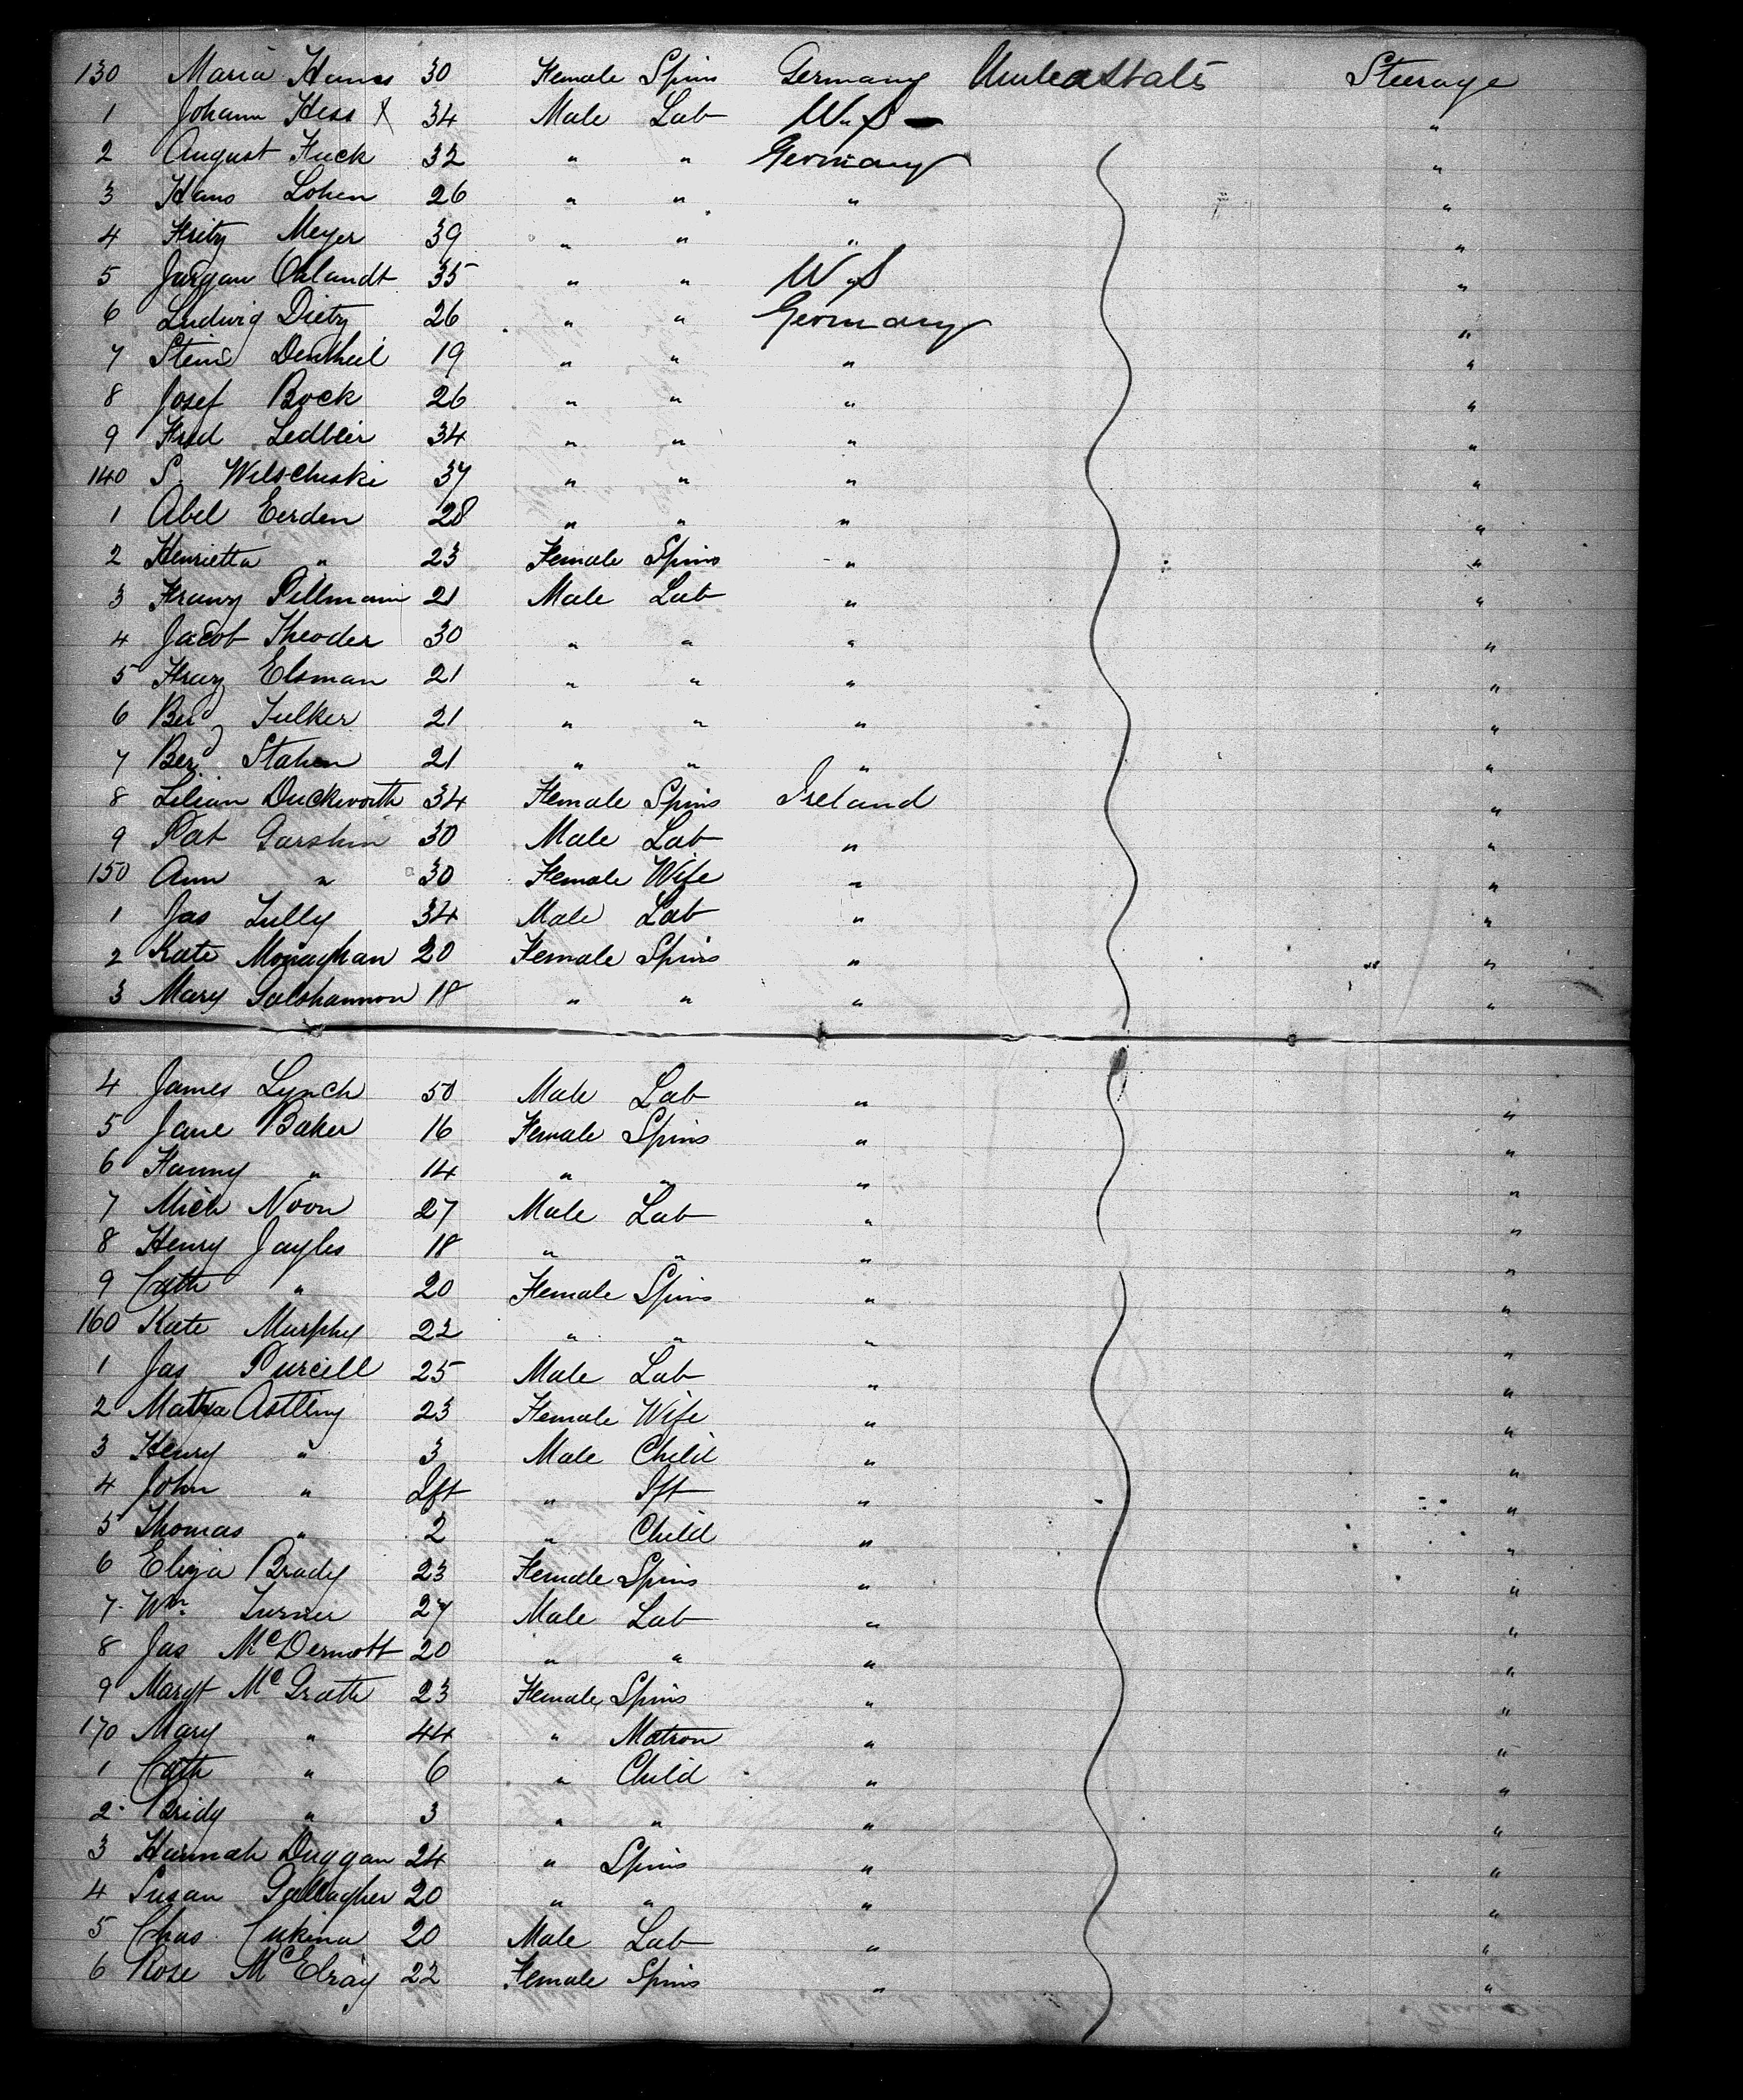 130 Maria Hanes 30 Female Spins Germany United States Steerage
1 Johann Hess X 34 Male Lab U.S. "
2 August Huck 32 " " Germany "
3 Hans Lohen 26 " " " "
4 Fritz Meyer 39 " " " "
5 Jurgan Ohlandt 35 " " U.S "
6 Ludwig Dietz 26 " " Germany "
7 Stein 19 " " " "
8 Josef Bock 26 " " " "
9 Fred Ledbeir 34 " " " "
140 S. Wilscheski 37 " " " "
1 Abel Eerden 28 " " " "
2 Henrietta " 23 Female Spins " "
3 Franz Pillmann 21 Male Lab " "
4 Jacob Theoder 30 " " " "
5 Franz Elsman 21 " " " "
6 Berd Tulker 21 " " " "
7 Berd Stahen 21 " " " "
8 Lilian Duckworth 34 Female Spins Ireland "
9 Pat Garshin 30 Male Lab " "
150 Ann " 30 Female Wife " "
1 Jas Tully 34 Male Lab " "
2 Kate Monaghan 20 Female Spins " "
3 Mary Galshannon 18 " " " "
4 James Lynch 50 Male Lab " "
5 Jane Baker 16 Female Spins " "
6 Fanny " 14 " " " "
7 Mich Noon 27 Male Lab " "
8 Henry Jayles 18 " " " "
9 Cath " 20 Female Spins " "
160 Kate Murphy 22 " " " "
1 Jas Purcell 25 Male Lab " "
2 Astling 23 Female Wife " "
3 Henry " 3 Male Child " "
4 John " Ift " Ift " "
5 Thomas " 2 " Child " "
6 Eliza Brady 23 Female Spins " "
7 Wm Turner 27 Male Lab " "
8 Jas McDermott 20 " " " "
9 Margt McGrath 23 Female Spins " "
170 Mary " 44 " Matron " "
1 Cath " 6 " Child " "
2 Bridy " 3 " " " "
3 Hannah Duggan 24 " Spins " "
4 Susan Gallagher 20 " " " "
5 Chas Cukina 20 Male Lab " "
6 Rose McElray 22 Female Spins " "